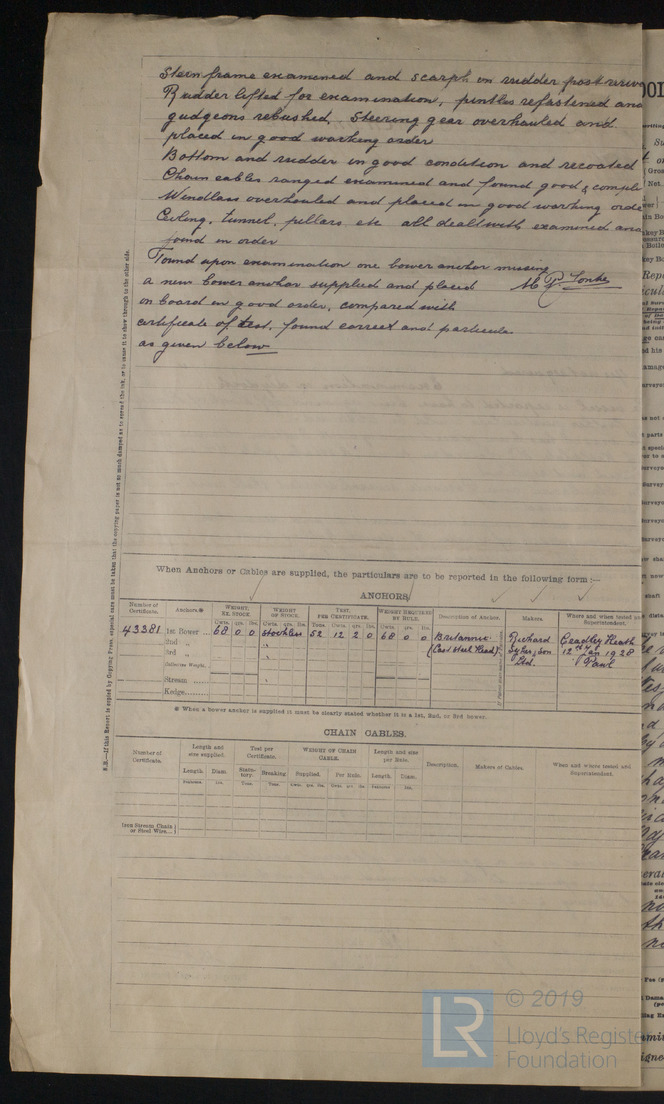 Stern frame examined and scarph on rudder post
Rudder lifted for examination, pintles refastened and
gudgeons rebushed. Steering gear overhauled and
placed in good working order
Bottom and rudder in good condition and recoated
Chain cables ranged examined and found good & comple
Windlass overhauled and placed in good working orde
Ceiling, tunnel, pillars etc all dealt with examined and
found in order
Found upon examination one bower anchor missing
a new bower anchor supplied and placed
on board in good order, compared with
certificate of test, found correct and particulars
as given below
N.B.—If this Report is copied by Copying Press, especial care must be taken that the copying paper is not so much damped as to spread the ink, or to cause it to show through to the other side.
When Anchors or Cables are supplied, the particulars are to be reported in the following form :—
ANCHORS
Number of Certificate. Anchors.* WEIGHT, EX. STOCK WEIGHT OF STOCK. TEST, PER CERTIFICATE. WEIGHT REQUIRED BY RULE. Description of Anchor. Makers. Where and when tested and Superintendent.
Cwts. qrs. lbs. Cwts. qrs. lbs. Tons. Cwts. qrs. lbs. Cwts. qrs. lbs.
43381 1st Bower ... 68 0 0 Stockless 52 12 2 0 68 0 0 Britannic Richard Cradley Heath
2nd " (Cast Steel Head) Sykes & Son 12th Jan 1928
3rd " Ltd. Paul
Collective Weight.
Stream
Kedge
* When a bower anchor is supplied it must be clearly stated whether it is a 1st, 2nd, or 3rd bower.
CHAIN CABLES.
Number of Certificate. Length and size supplied. Test per Certificate. WEIGHT OF CHAIN CABLE. Length and size per Rule. Description. Makers of Cables. When and where tested and Superintendent.
Length. Diam. Statutory. Breaking Supplied. Per Rule. Length. Diam.
Iron Stream Chain or Steel Wire...
LR
© 2019
Lloyd's Registe
Foundation